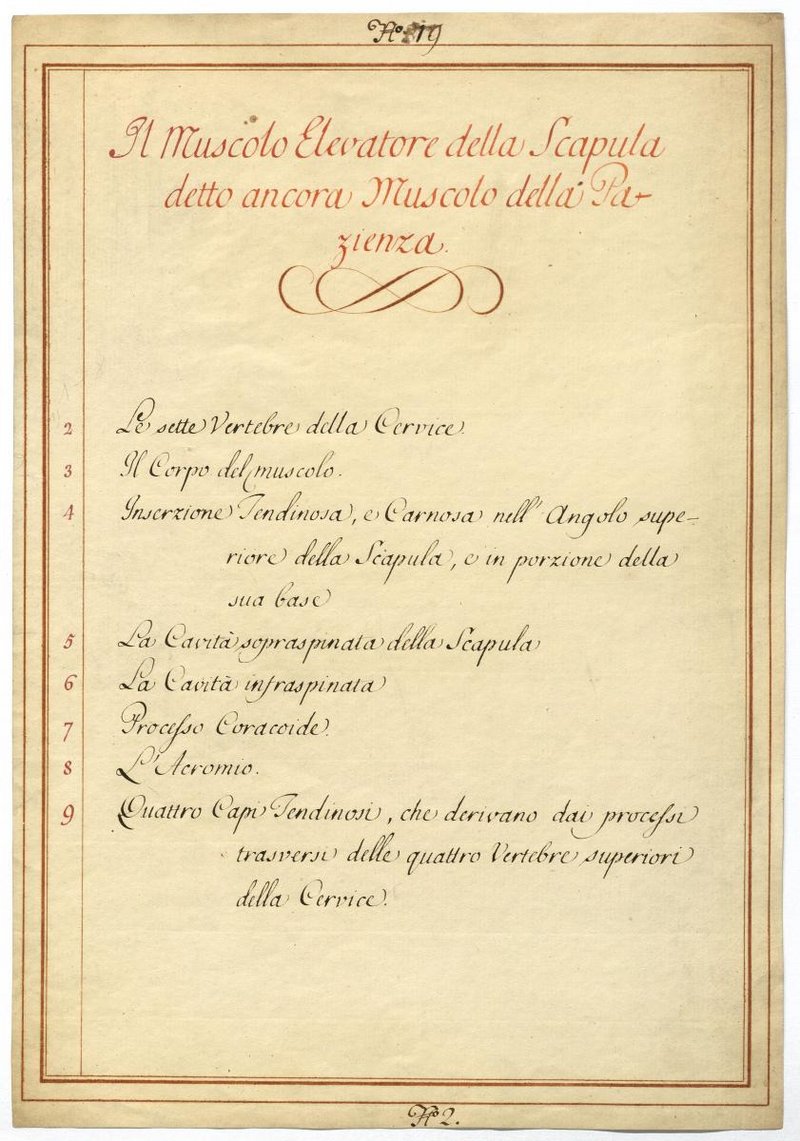 No. 19
Il Muscolo Elevatore della Scapula
detto ancora Muscolo della Pa-
zienza.
2 Le sette Vertebre della Cervice.
3 Il Corpo del muscolo.
4 Inserzione Tendinosa, e Carnosa nell' Angolo supe=
riore della Scapula, e in porzione della
sua base
5 La Cavità sopraspinata della Scapula
6 La Cavità infraspinata
7 Processo Coracoide.
8 L'Acromio.
9 Quattro Capi Tendinosi, che derivano dai processi
trasversi delle quattro Vertebre superiori
della Cervice.
No. 2.